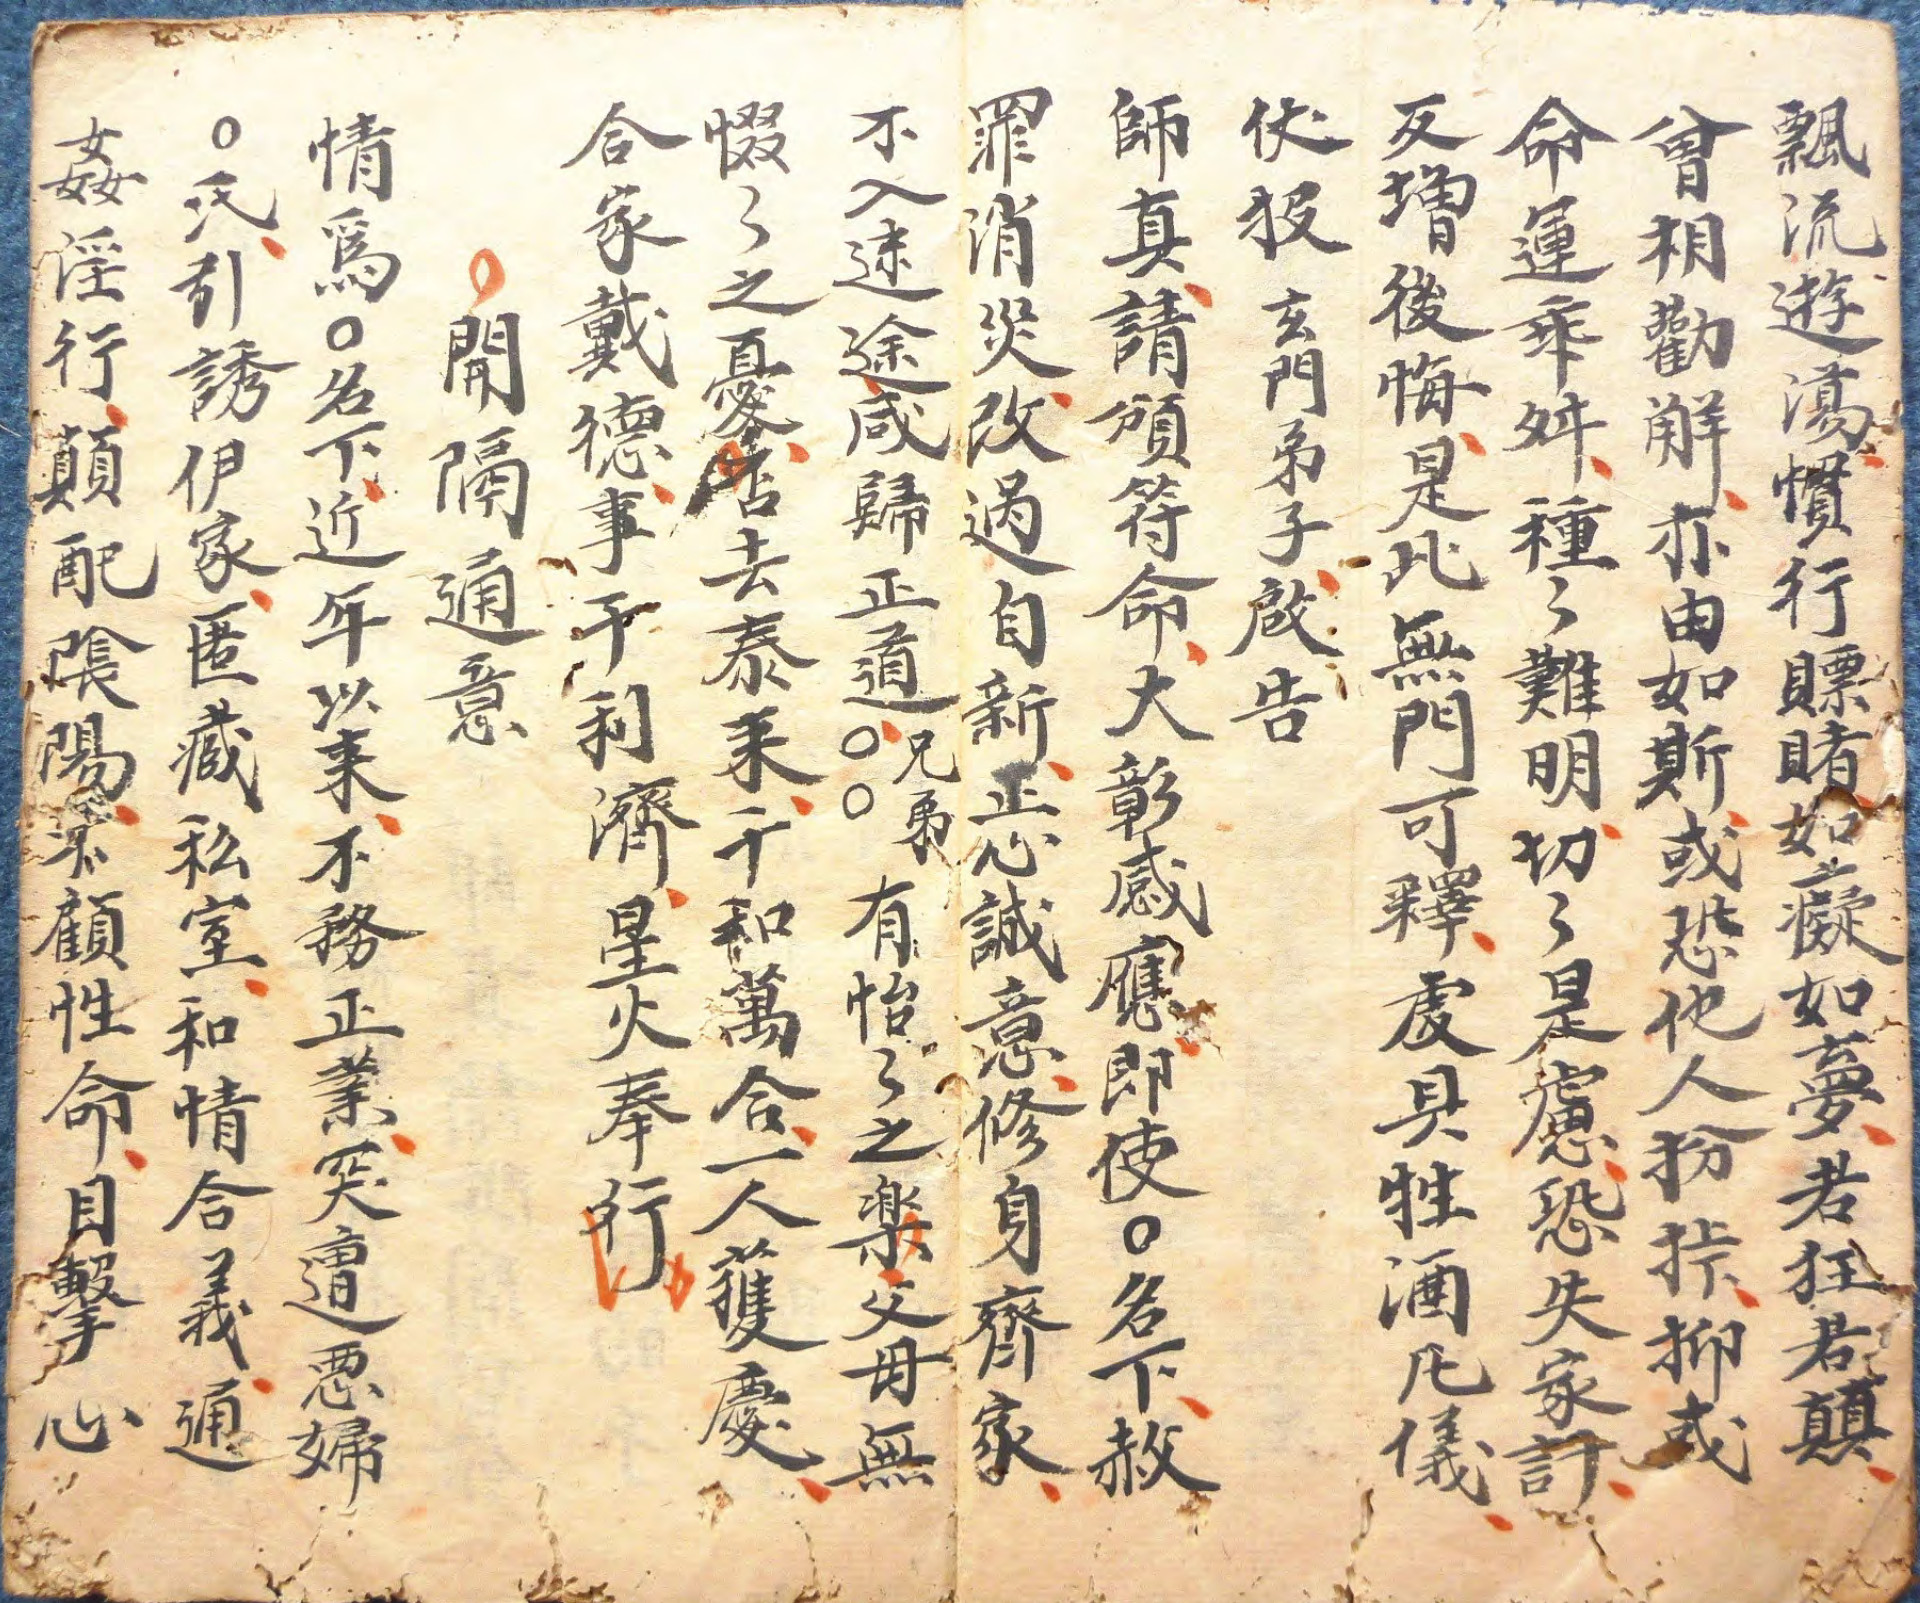 飄流遊蕩慣行賭賭如癡如夢若狂若顛
曾相勸解亦由如斯或恐他人扮挊抑或
命運乖舛種〻難明切〻是慮恐失家訂
反增後悔是此無門可釋虔具牲酒凡儀
伏投玄門弟子啟告
師真請頒符命大彰感應即使○名下赦
罪消災改過自新正心誠意修身齊家
不入迷途咸歸正道○○兄弟有怡〻之楽父母無
惙〻之憂否去泰来千和萬合一人獲慶
合家戴德事干利濟星火奉行
○開隔通意
情為○名下近年以来不務正業突遭惡婦
○氏引誘伊家匿藏私室和情合義通
姦淫行顛配陰陽不顧性命目擊心